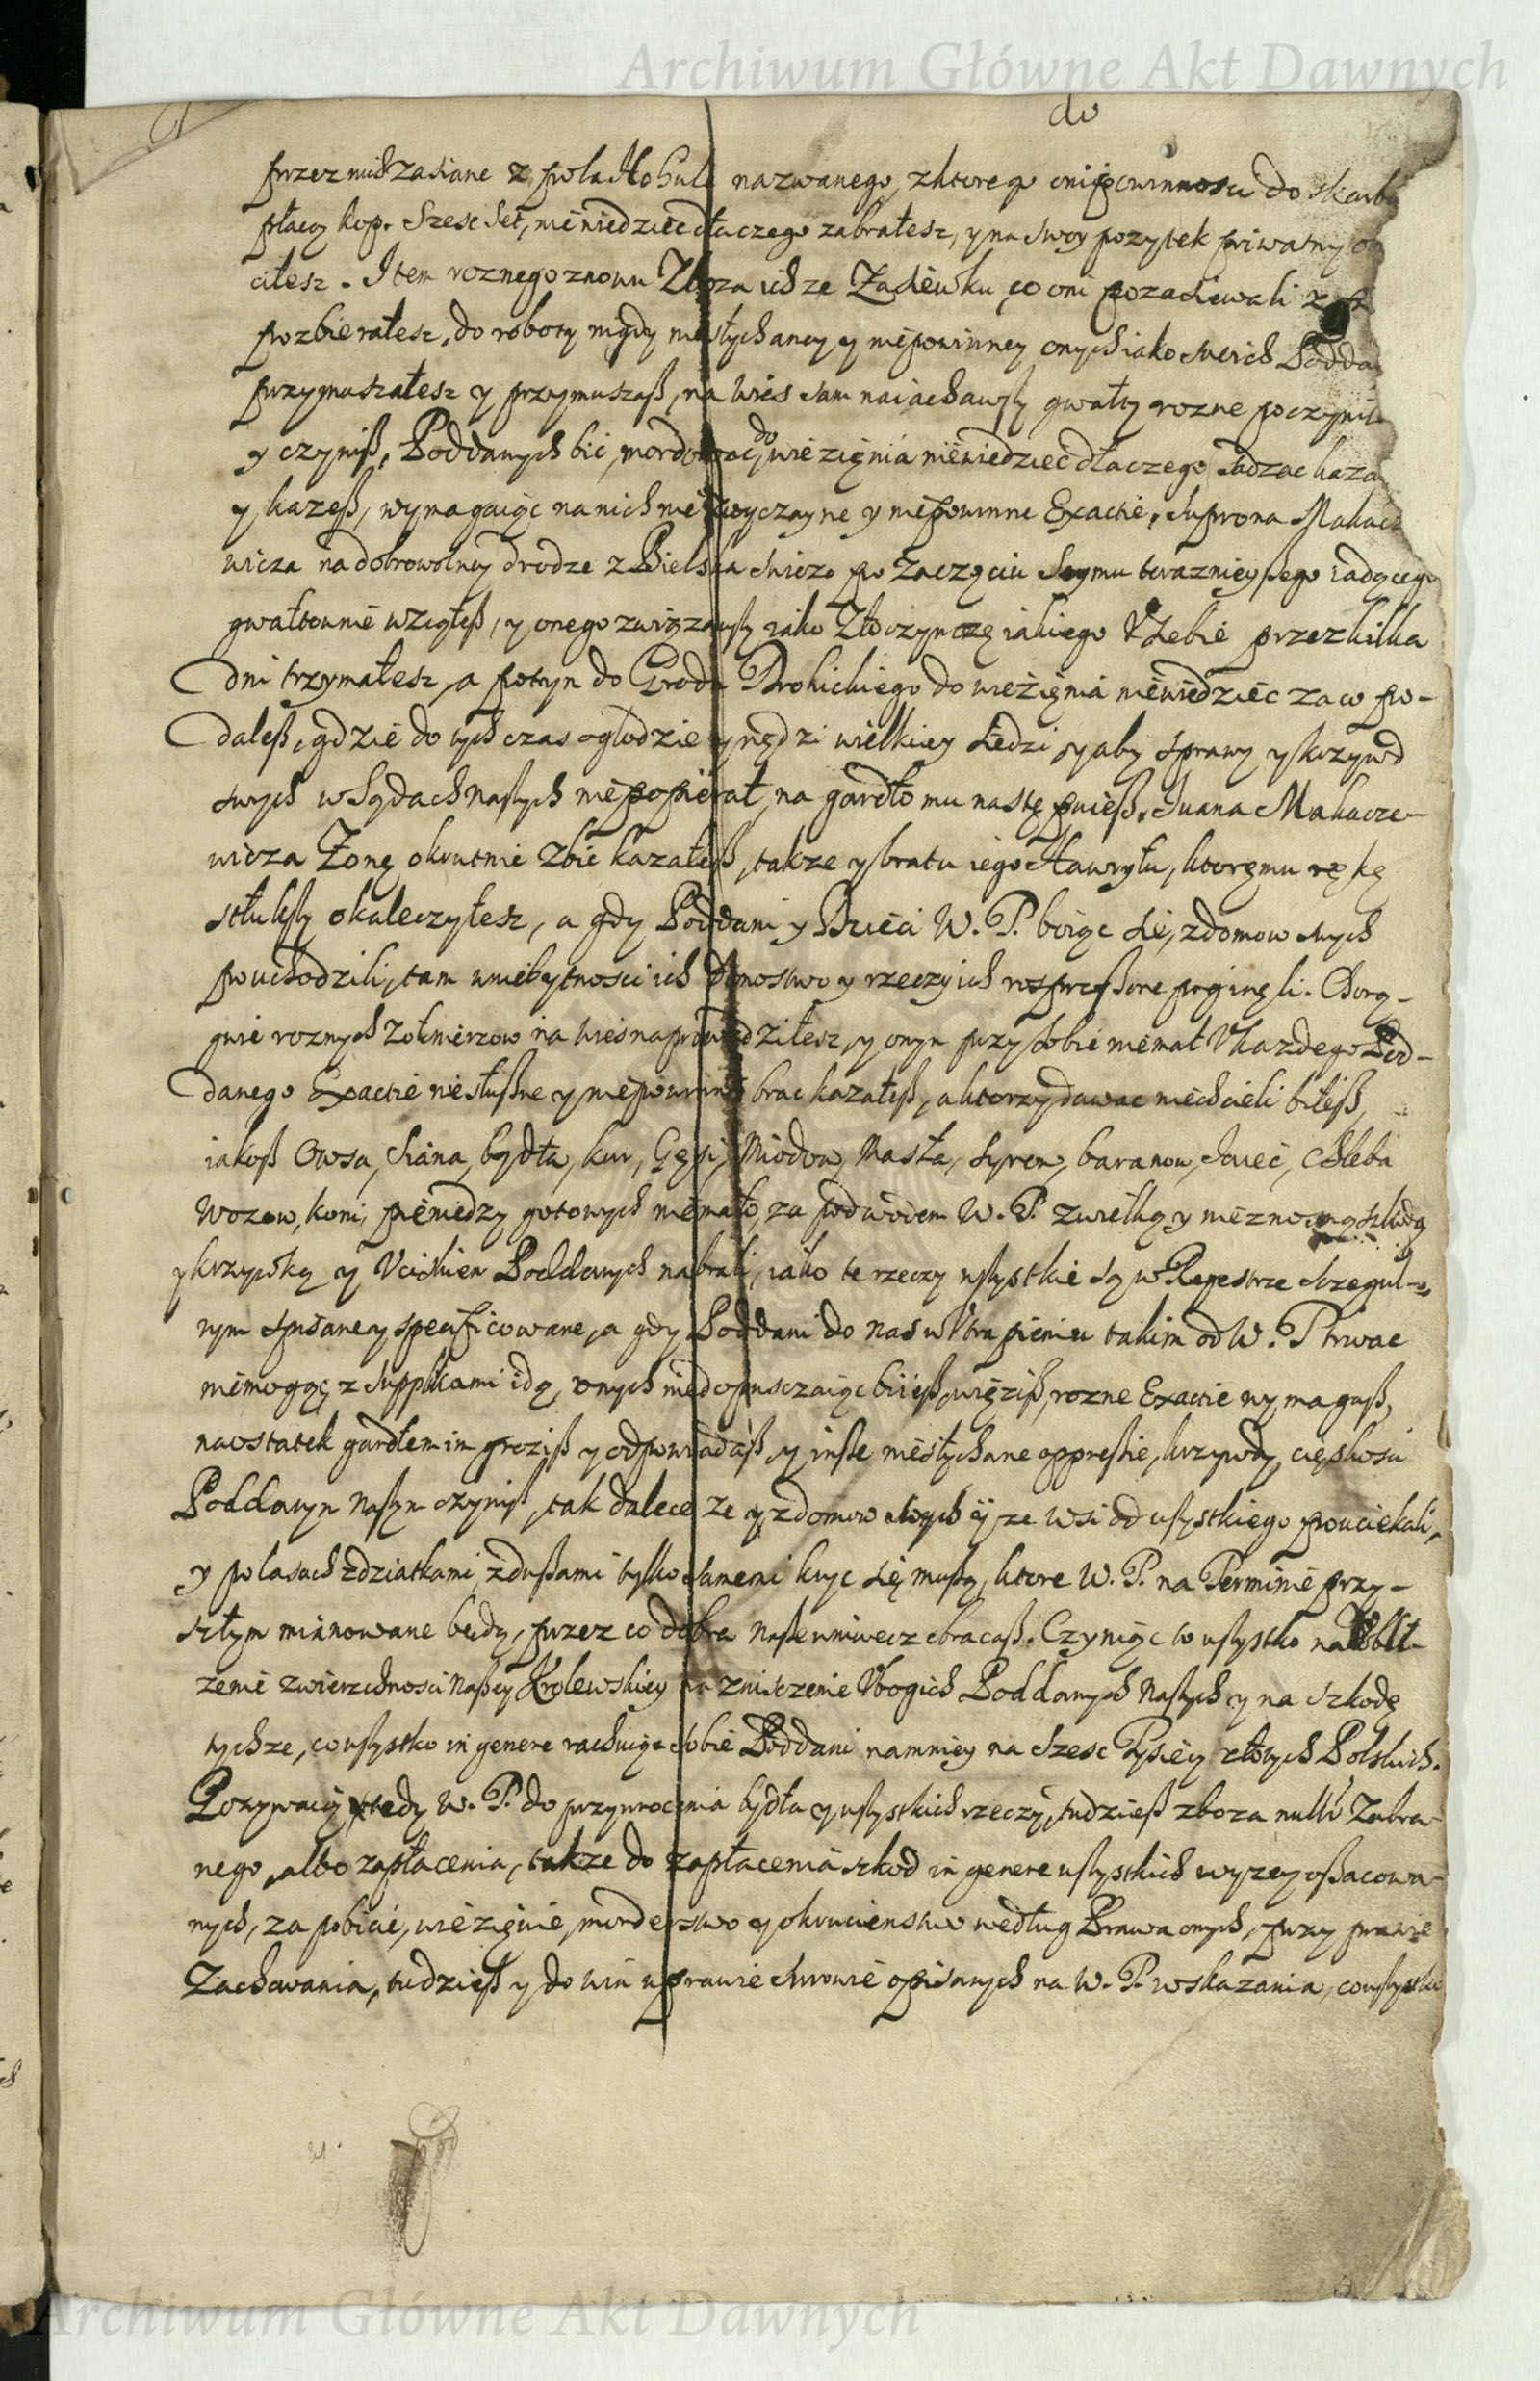 Archiwum Główne Akt Dawnych
przez nich zasiane z pola Hohule nazwanego, z ktorego oni powinnosci do skarbu
płacą kop. Szesc set, niewiedziec dlaczego zabrałesz, y na swoy pozytek priwatny
ciłesz. Item roznego znowu Zboza ich ze Zasiewku, co oni pozasiewali
pozbierałesz, do roboty nigdy niesłychaney y niepowinney onych iako swoich Podda
przymuszałesz y przymuszasz, na wies sam naiachawszy gwałty rozne poczyni
y czynisz, Poddanych bic, mordowac, do wiezięnia niewiedziec dlaczego sadzac kaza
y kazesz, wymagaiąc na nich niezwyczayne y niepowinne Exactie, Suprona Makace
wicza na dobrowolney drodze z Bielska swiezo po Zaczęciu Seymu teraznieyszego iadącego
gwałtownie wziąłesz, y onego związawszy iako Złoczynczę iakiego V Siebie przez kilka
dni trzymałesz, a potym do Grodu Brohickiego do wieżięnia niewiedziec za co po-
dałesz, gdzie do tych czas o głodzie y nędzi wielkiey siedzi, y aby sprawy y krzywd
swych w Sądach naszych niepopierał, na gardło mu nastę puiesz. Iwana Makacze-
wicza Zonę okrutnie Zbic kazałesz, takze y bratu iego Hawryłu, ktoremu rękę
stłukszy okaleczyłesz, a gdy Poddani y Dzieci W. P. boiąc się, z domow swych
pouchodzili, tam w niebytnosci ich domostwo y rzeczy ich rosproszone poginęli. Chorą-
gwie roznych Zołnierzow na wies naprowadziłesz, y onym przy sobie niemal V kazdego Pod-
danego Exactie niesłuszne y niepowinne brac kazałesz, a ktorzy dawac niechcieli biłesz,
iakosz Owsa, siana, bydła, kur, Gęsi, Miodow, Masła, syrow, baranow, Owiec, Chleba
Wozow, koni, pieniedzy gotowych niemało, za podwodem W. P. z wielką y nieznosną szkodą
y krzywdą y Vciskiem Poddanych nabrali, iako te rzeczy wszystkie są w Regestrze szczegul-
nym spisane y specificowane, a gdy Poddani do nas w Vtrapieniu takim od W. P. trwac
niemogąc z supplikami idą, onych niedopuszczaiąc biiesz, więzisz, rozne Exactie wymagasz,
naostatek gardłem im grozisz y odpowiadasz, y insze niesłychane oppressie, krzywdy, cięskosci
Poddanym Naszym czynisz, tak dalece ze y z domow swych y ze wsi od wszystkiego pouciekali,
y po lasach z dziatkami, z duszami tylko samemi kryc się muszą, ktore W. P. na Terminie przy-
szłym mianowane będą, przez co dobra Nasze wniwecz obracasz. Czyniąc to wszystko na Vbli-
zenie zwierzchnosci Naszey Krolewskiey na zniszczenie Vbogich Poddanych Naszych y na szkodę
tychze, co wszystko in genere rachuią sobie Poddani namniey na szesc Tysięcy złotych Polskich.
Pozywaią tedy W. P. do przywrocenia bydła y wszystkich rzeczy, tudziesz zboza Zabra-
nego, albo zapłacenia, takze do zapłacenia szkod in genere wszystkich wyzey oszacowa-
nych, za pobicie, wiezięnie, morderstwo y okrucienstwo według Prawa onych, przy prawie
Zachowania, tudziesz y do win w prawie surowie opisanych na W. P. wskazania, co wszystko
Archiwum Główne Akt Dawnych